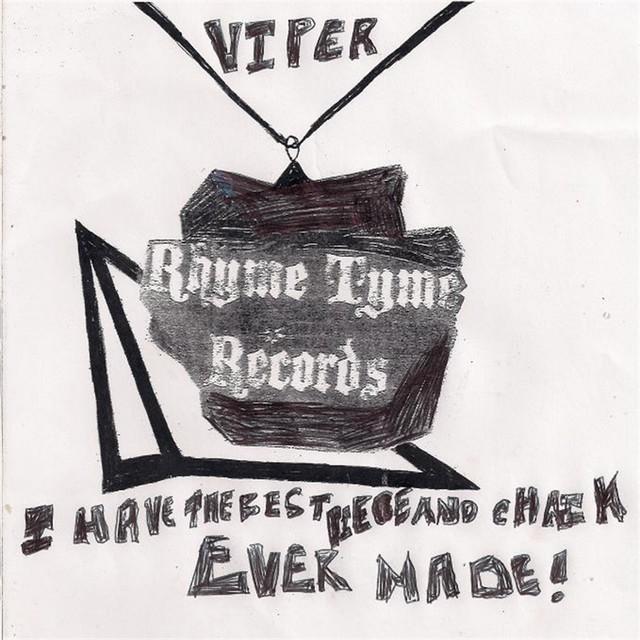 VIPER
Rhyme Tyme
Records
I HAVE THE BEST PIECE AND CHAIN
EVER MADE!